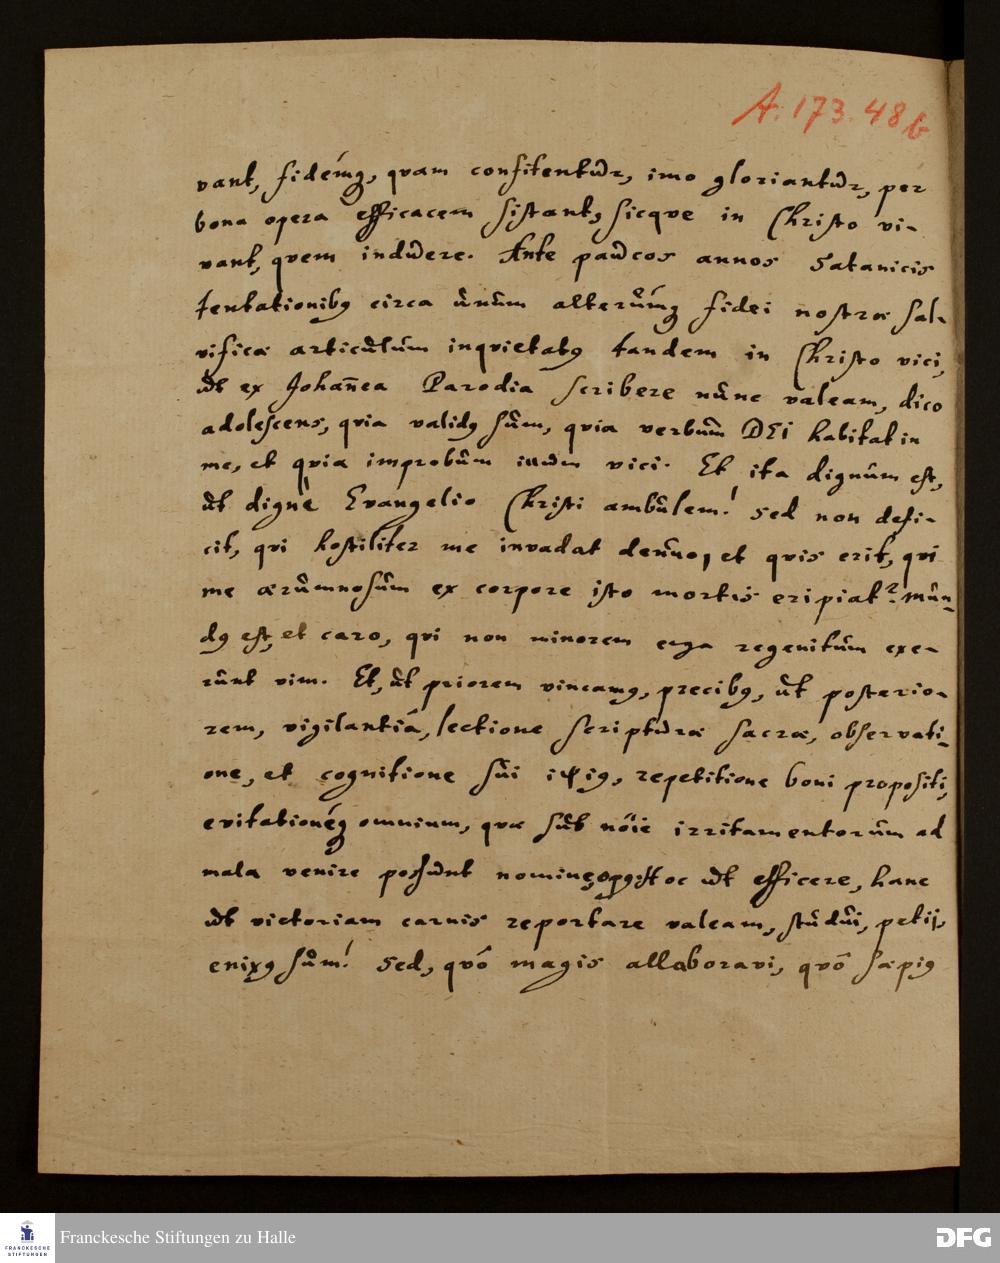 A. 173. 48 b
vant, fidemq́;, quam confitentur, imo gloriantur, per
bona opera efficacem sistant, sicque in Christo vi-
vant, quem induere. Ante paucos annos Satanicis
tentationibq circa unum alterumq́; fidei nostræ sal-
vificæ articulum inquietatq tandem in Christo vici,
ut ex Johan̄ea Parodia scribere nunc valeam, dico
adolescens, quia validq sum, quia verbum DEI habitat in
me, et quia improbum illum vici. Et ita dignum est,
ut dignè Evangelio Christi ambulem! Sed non defi-
cit, qui hostiliter me invadat denuo, et quis erit, qui
me ærumnosum ex corpore isto mortis eripiat? Mun-
dq est, et caro, qui non minorem erga regenitum exe-
runt vim. Et, ut priorem vincamq, precibq, ut posterio-
rem, vigilantiâ, lectione scripturæ sacræ, observati-
one, et cognitione sui ipsiq, repetitione boni propositi,
evitationeq́; omnium, quæ sub nōie irritamentorum ad
mala venire possunt Hoc ut efficere, hanc
ut victoriam carnis reportare valeam, studui, petij,
enixq sum! Sed, quô magis allaboravi, quô sæpiq
Franckesche Stiftungen zu Halle
FRANCKESCHE
STIFTUNGEN
DFG